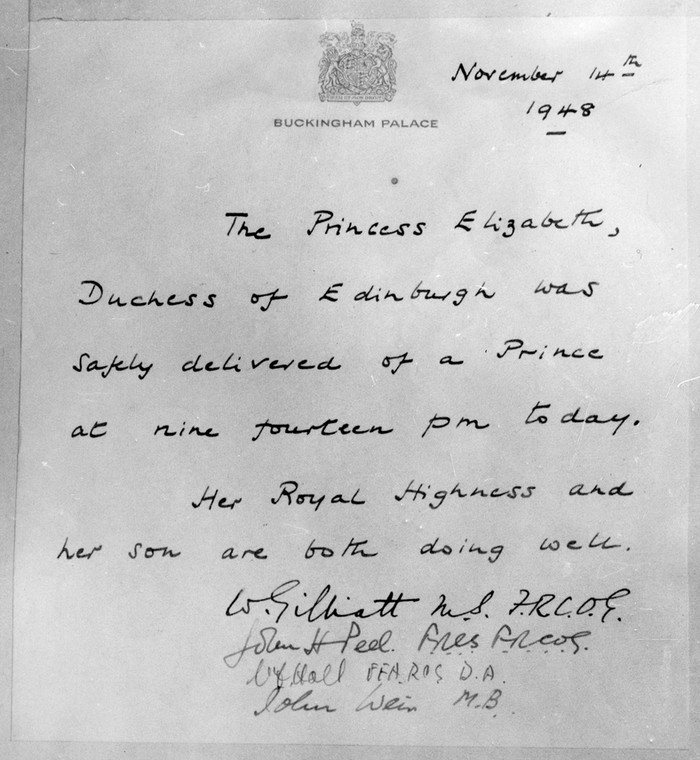 November 14th
1948
BUCKINGHAM PALACE
The Princess Elizabeth,
Duchess of Edinburgh was
safely delivered of a Prince
at nine fourteen pm today.
Her Royal Highness and
her son are both doing well.
W. Gilliatt M.S. F.R.C.O.G.
John H Peel. F.R.C.S F.R.C.O.G.
Hall D.A.
John Weir M.B.